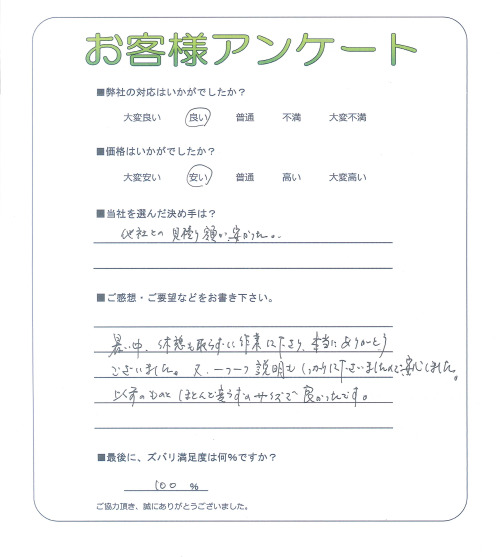 お客様アンケート
■弊社の対応はいかがでしたか?
大変良い 良い 普通 不満 大変不満
■価格はいかがでしたか?
大変安い 安い 普通 高い 大変高い
■当社を選んだ決め手は?
他社との見積り額が安かった。
■ご感想・ご要望などをお書き下さい。
暑い中、休憩も取らずに作業に下さり、本当にありがとう
ございました。又、一つ一つ説明も 下さいましたので安心しました。
以前のものとほとんど変らずのサイズで良かったです。
■最後に、ズバリ満足度は何%ですか?
100 %
ご協力頂き、誠にありがとうございました。